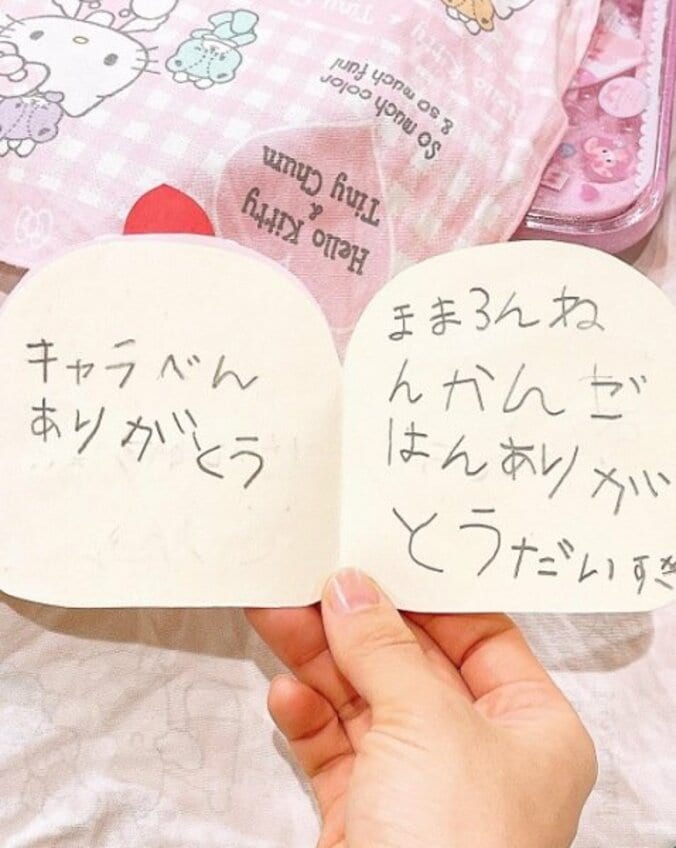 キャラべん
ありがとう
まま3んね
んかんご
はんありが
とうだいすき
Hello Kitty
&
Tiny Chum
So much color
& so much fun!